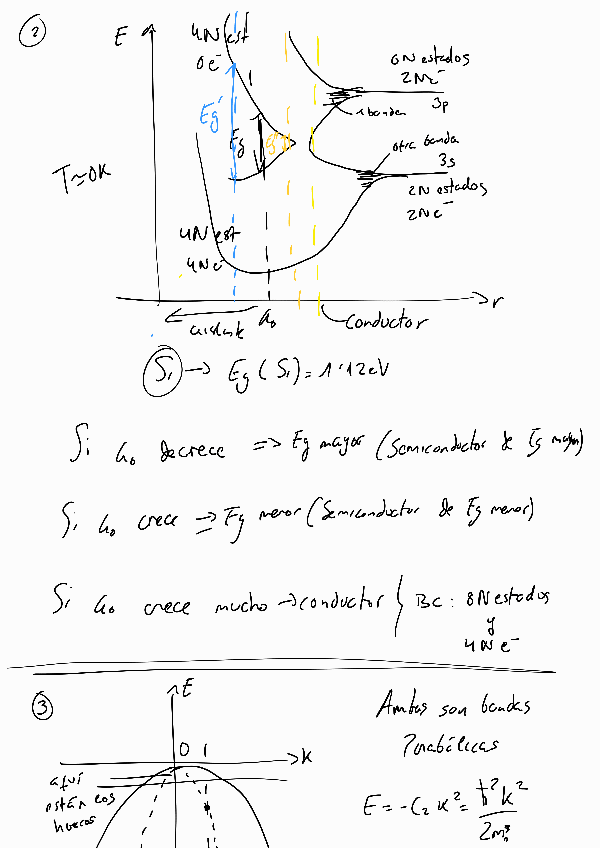 2
E
4N est
0e⁻
6N estados
2Ne⁻
3p
1 banda
Eg'
Eg
Eg''
otra banda
3s
2N estados
2Ne⁻
T≃0K
4N est
4Ne⁻
r
aislante
a₀
conductor
Si → Eg (Si) = 1'12eV
Si a₀ decrece => Eg mayor (Semiconductor de Eg mayor)
Si a₀ crece => Eg menor (Semiconductor de Eg menor)
Si a₀ crece mucho → conductor { BC: 8N estados
y
4N e⁻
3
E
0 1
K
aquí
están los
huecos
Ambas son bandas
Parabólicas
E = -C₂ K² = ħ²k²
2m